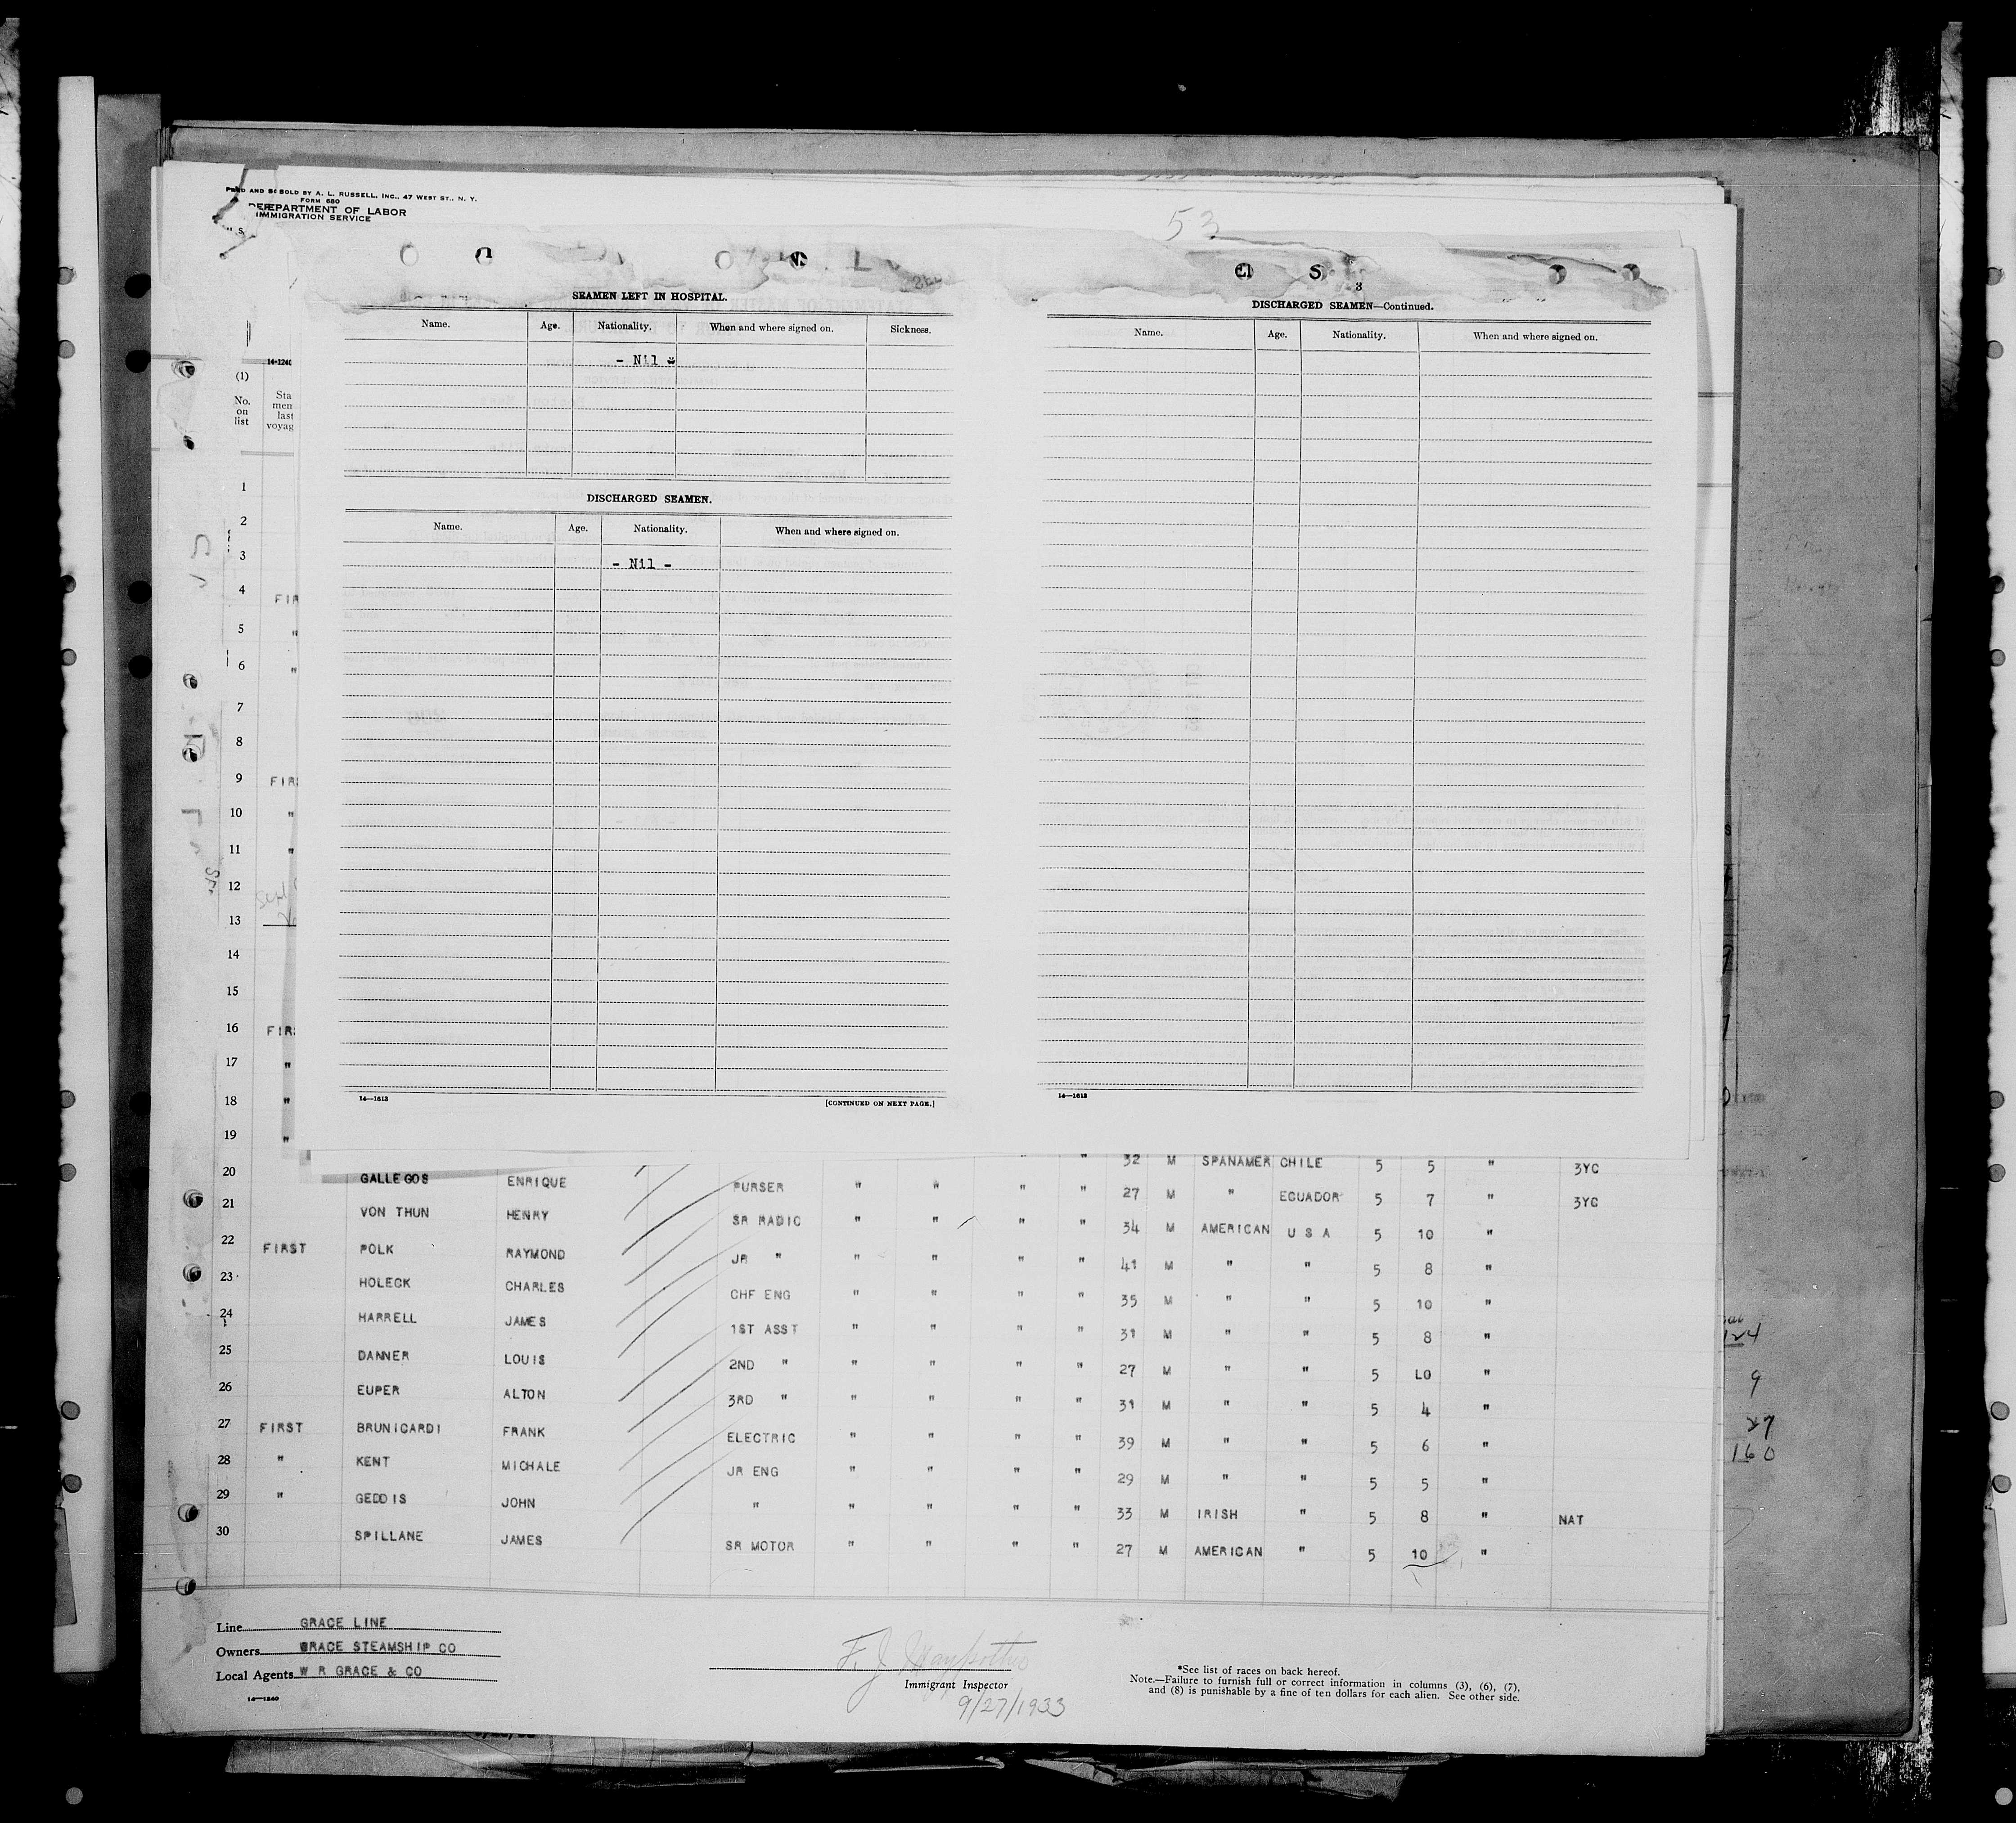 AND SOLD BY A. L. RUSSELL, INC., 47 WEST ST., N. Y.
FORM 680
DEPARTMENT OF LABOR
IMMIGRATION SERVICE
53
SEAMEN LEFT IN HOSPITAL.
Name. Age. Nationality. When and where signed on. Sickness.
- Nil -
DISCHARGED SEAMEN.
Name. Age. Nationality. When and where signed on.
- Nil -
14—1613 [CONTINUED ON NEXT PAGE.]
3
DISCHARGED SEAMEN—Continued.
Name. Age. Nationality. When and where signed on.
14—1613
14-1240
(1)
No. on list
Sta
men
last
voyag
1
2
3
4 FIR
5 "
6 "
7
8
9 FIR
10 "
11 "
12
13
14
15
16 FIR
17 "
18 "
19 "
" 32 M SPANAMER CHILE 5 5 " 3YC
20 GALLEGOS ENRIQUE PURSER " " " " 27 M " ECUADOR 5 7 " 3YC
21 VON THUN HENRY SR RADIO " " " " 34 M AMERICAN U S A 5 10 "
22 FIRST POLK RAYMOND JR " " " " " 41 M " " 5 8 "
23 HOLECK CHARLES CHF ENG " " " " 35 M " " 5 10 "
24 HARRELL JAMES 1ST ASST " " " " 31 M " " 5 8 "
25 DANNER LOUIS 2ND " " " " " 27 M " " 5 LO "
26 EUPER ALTON 3RD " " " " " 31 M " " 5 4 "
27 FIRST BRUNICARDI FRANK ELECTRIC " " " " 39 M " " 5 6 "
28 " KENT MICHALE JR ENG " " " " 29 M " " 5 5 "
29 " GEDDIS JOHN " " " " " 33 M IRISH " 5 8 " NAT
30 SPILLANE JAMES SR MOTOR " " " " 27 M AMERICAN " 5 10 "
Line GRACE LINE
Owners GRACE STEAMSHIP CO
Local Agents W R GRACE & CO
14—1240
F. J.
Immigrant Inspector
9/27/1933
*See list of races on back hereof.
Note.—Failure to furnish full or correct information in columns (3), (6), (7),
and (8) is punishable by a fine of ten dollars for each alien. See other side.
124
9
27
160